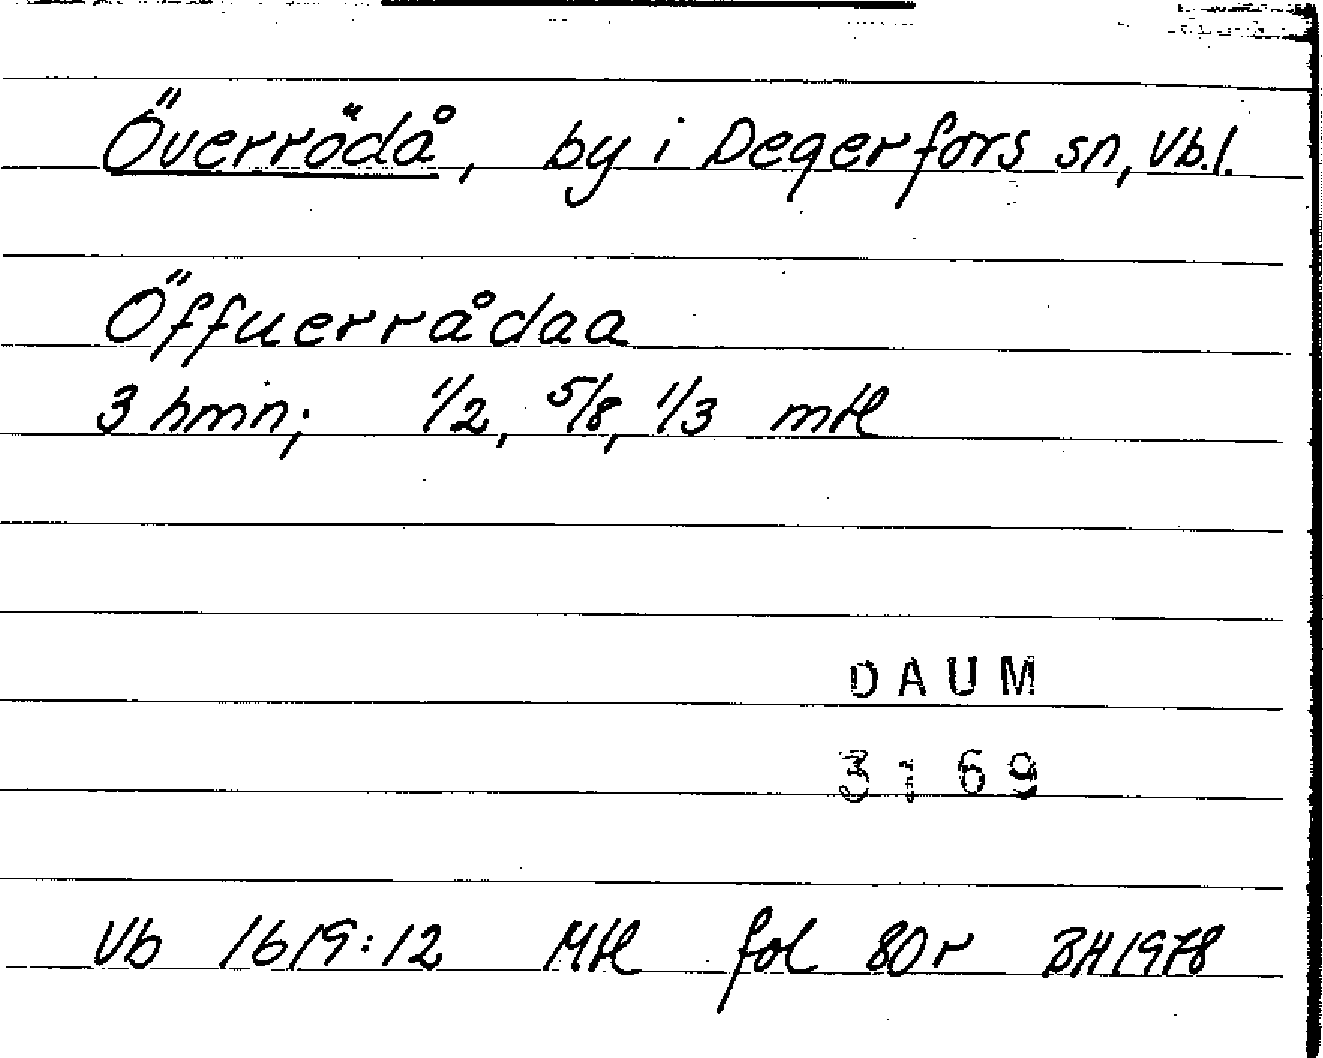 Överrödå, by i Degerfors sn, Vb.l.
Öffuerrådaa
3 hmn; 1/2, 5/8, 1/3 mtl
DAUM
3169
Vb 1619:12 Mtl fol 80r BH1978